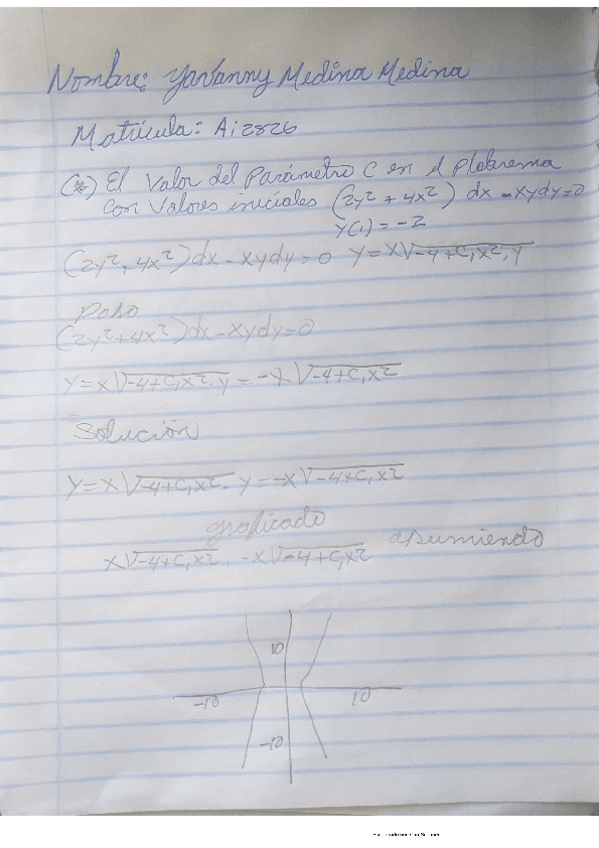 Nombre: Yovanny Medina Medina
Matricula: Ai2826
(*) El Valor del Parámetro C en el Plobrema
con Valores iniciales (2y² + 4x²) dx - xydy=0
Y(1) = -2
(2y²+4x²)dx - xydy=0 y=x√-4+C₁x², y
paso
(2y²+4x²)dx-xydy=0
y=x√-4+C₁x². y=-x√-4+C₁x²
Solución
y=x√-4+C₁x². y=-x√-4+C₁x²
graficado
x√-4+C₁x². -x√-4+C₁x² asumiendo
10
-10 10
-10